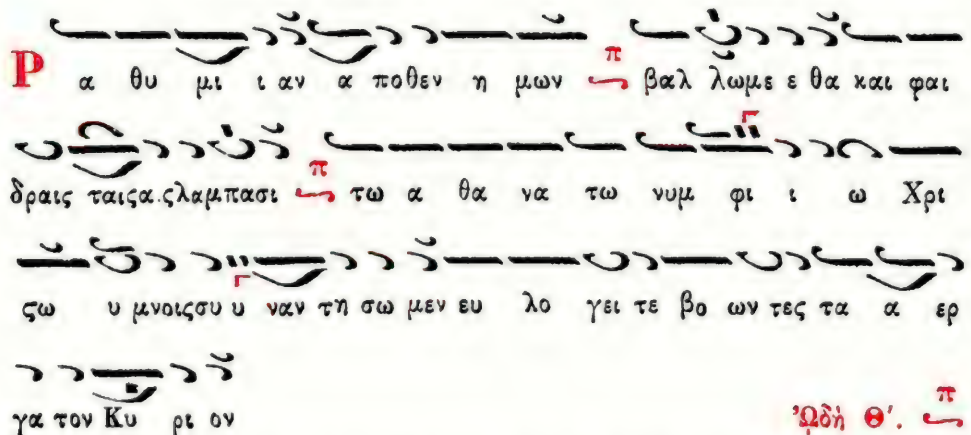 Ρ α θυ μι ι αν α ποθεν η μων π βαλ λωμε ε θα και φαι
δραις ταιςα.ςλαμπασι π τω α θα να τω νυμ φι ι ω Χρι
ςω υ μνοιςσυ υ ναν τη σω μεν ευ λο γει τε βο ων τες τα α ερ
γα τον Κυ ρι ον Ὠδὴ Θ'. π